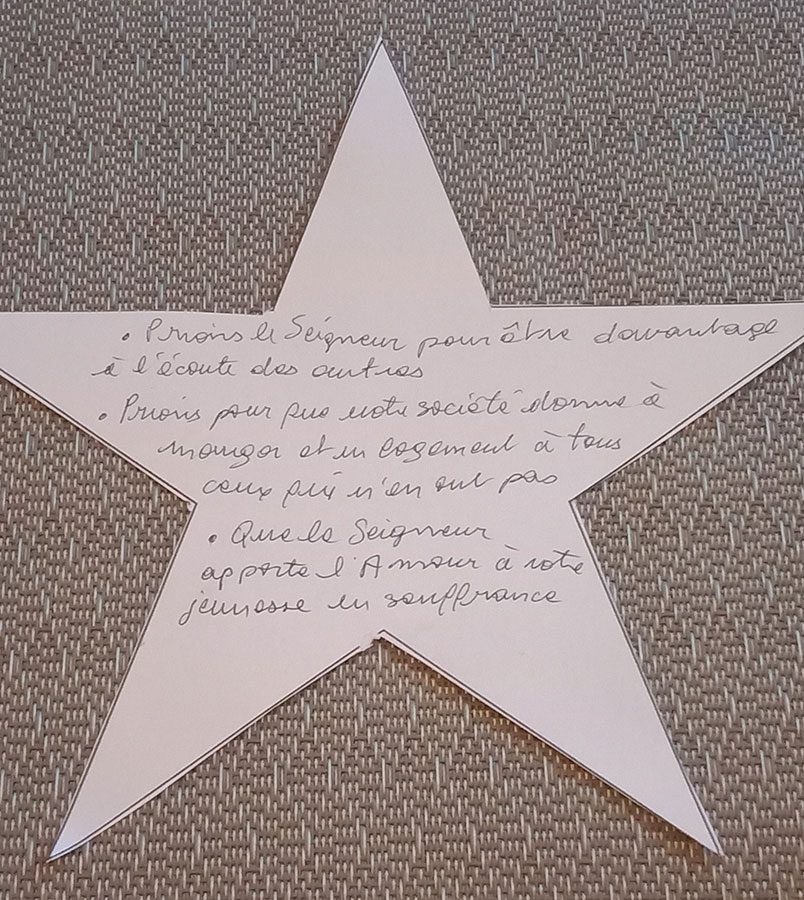 • Prions le Seigneur pour être davantage
à l'écoute des autres
• Prions pour que notre société donne à
manger et un logement à tous
ceux qui n'en ont pas
• Que le Seigneur
apporte l'Amour à notre
jeunesse en souffrance